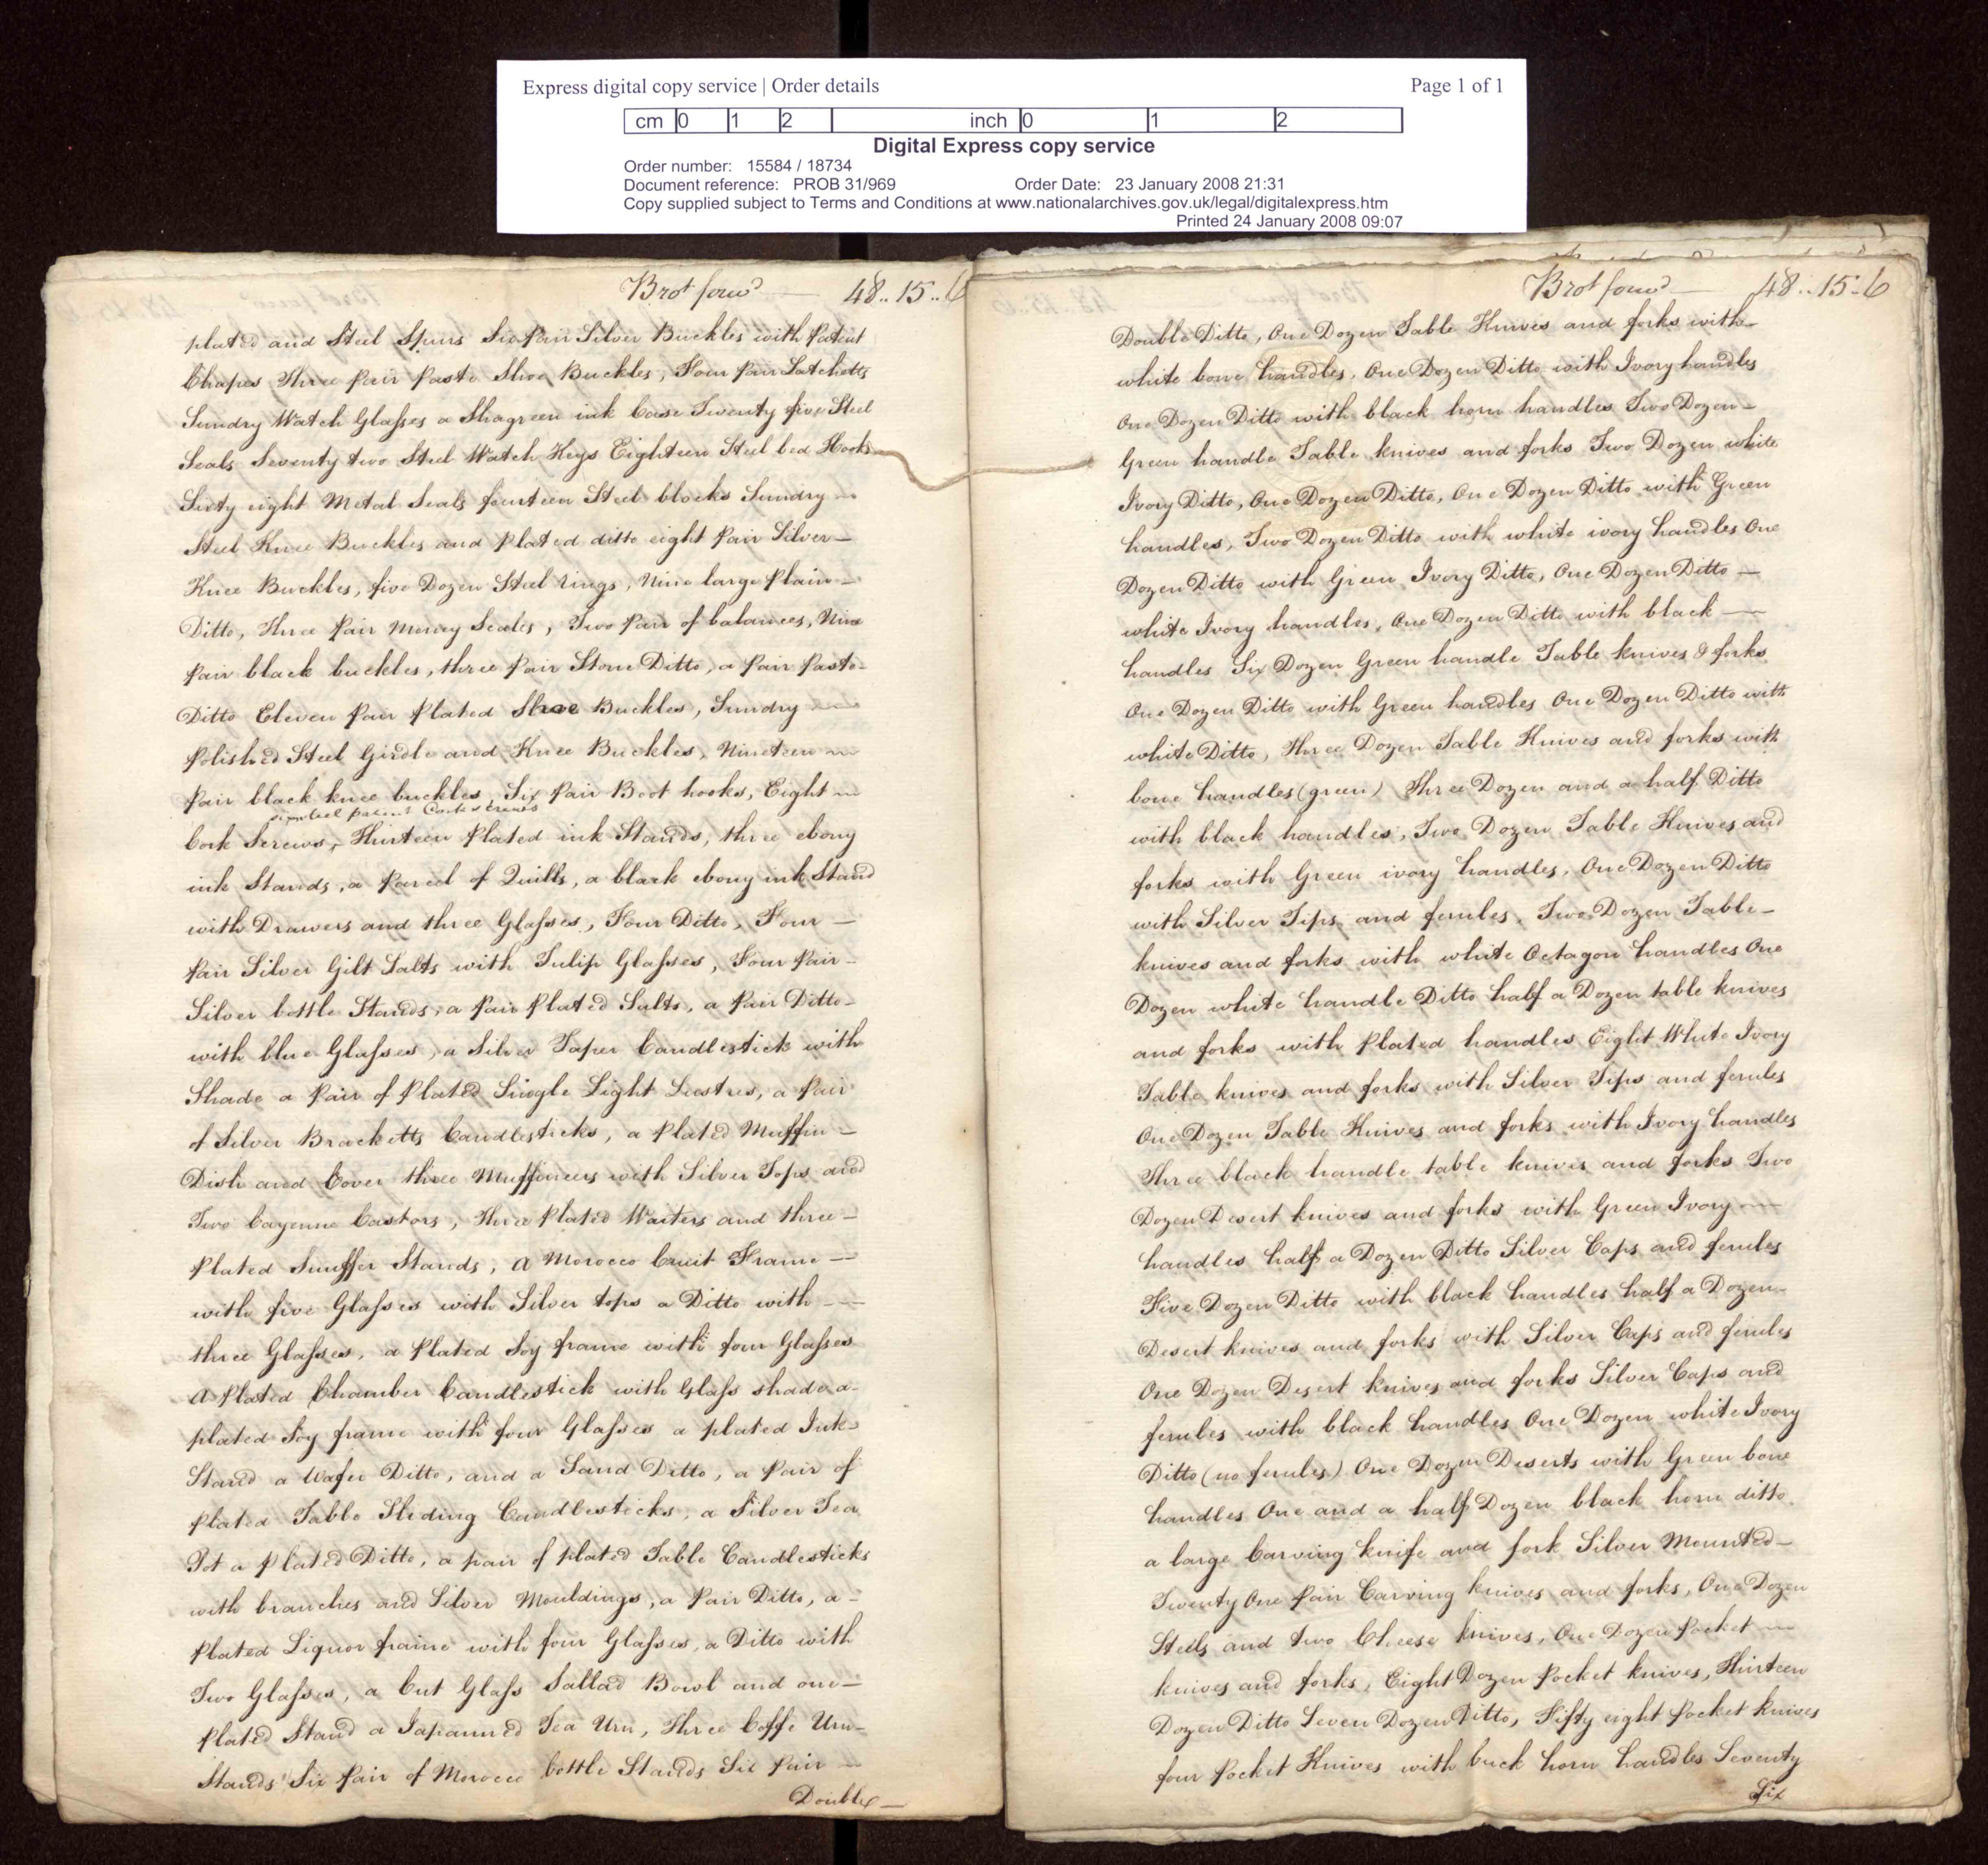 Express digital copy service | Order details Page 1 of 1
cm 0 1 2 inch 0 1 2
Digital Express copy service
Order number: 15584 / 18734
Document reference: PROB 31/969 Order Date: 23 January 2008 21:31
Copy supplied subject to Terms and Conditions at www.nationalarchives.gov.uk/legal/digitalexpress.htm
Printed 24 January 2008 09:07
Brot forwd 48..15..6
plated and Steel Spurs Six Pair Silver Buckles with Patent
Chapes Three Pair Paste Shoe Buckles, Four Pair Latchetts
Sundry Watch Glasses a Shagreen ink Case Twenty five Steel
Seals Seventy two Steel Watch Keys Eighteen Steel bed Hooks
Sixty eight Metal Seals fourteen Steel blocks Sundry
Steel Knee Buckles and plated ditto eight Pair Silver
Knee Buckles, five Dozen Steel rings, Nine large Plain
Ditto, Three Pair Money Scales, Two Pair of balances, Nine
Pair black buckles, three Pair Stone Ditto, a Pair Paste
Ditto Eleven Pair Plated Shoe Buckles, Sundry
Polished Steel Girdle and Knee Buckles, Nineteen
Pair black knee buckles, Six Pair Boot hooks, Eight
patent Corkscrews
Cork Screws, Thirteen Plated ink Stands, three ebony
ink Stands, a Parcel of Quills, a black ebony ink Stand
with Drawers and three Glasses, Four Ditto, Four
Pair Silver Gilt Salts with Tulip Glasses, Four Pair
Silver bottle Stands, a Pair Plated Salts, a Pair Ditto
with blue Glasses, a Silver Taper Candlestick with
Shade a Pair of Plated Single Light Lustres, a Pair
of Silver Bracketts Candlesticks, a Plated Muffin
Dish and Cover three Muffineers with Silver Tops and
Two Cayenne Castors, Three Plated Waiters and three
Plated Snuffer Stands, a Morocco Cruit Frame
with five Glasses with Silver tops a Ditto with
three Glasses, a Plated Soy frame with four Glasses
A Plated Chamber Candlestick with Glass shade a
plated Soy frame with four Glasses a plated Ink
Stand a Wafer Ditto, and a Sand Ditto, a Pair of
Plated Table Sliding Candlesticks, a Silver Tea
Pot a Plated Ditto, a pair of plated Table Candlesticks
with branches and Silver Mouldings, a Pair Ditto, a
Plated Liquor frame with four Glasses, a Ditto with
Two Glasses, a Cut Glass Sallad Bowl and one
Plated Stand a Japanned Tea Urn, Three Coffe Urn
Stands Six Pair of Morocco bottle Stands Six Pair
Double
Brot forwd 48..15..6
Double Ditto, One Dozen Table Knives and forks with
white bone handles, One Dozen Ditto with Ivory handles
One Dozen Ditto with black horn handles Two Dozen
Green handle Table knives and forks Two Dozen white
Ivory Ditto, One Dozen Ditto, One Dozen Ditto with Green
handles, Two Dozen Ditto with white ivory handles One
Dozen Ditto with Green Ivory Ditto, One Dozen Ditto
white Ivory handles, One Dozen Ditto with black
handles Six Dozen Green handle Table knives & forks
One Dozen Ditto with Green handles One Dozen Ditto with
white Ditto, Three Dozen Table Knives and forks with
bone handles (green) Three Dozen and a half Ditto
with black handles, Two Dozen Table Knives and
forks with Green ivory handles, One Dozen Ditto
with Silver Tips and ferules, Two Dozen Table
knives and forks with white Octagon handles One
Dozen white handle Ditto half a Dozen table knives
and forks with Plated handles Eight White Ivory
Table knives and forks with Silver Tips and ferules
One Dozen Table Knives and forks with Ivory handles
Three black handle table knives and forks Two
Dozen Desert knives and forks with Green Ivory
handles half a Dozen Ditto Silver Caps and ferules
Five Dozen Ditto with black handles half a Dozen
Desert knives and forks with Silver Caps and ferules
One Dozen Desert knives and forks Silver Caps and
ferules with black handles One Dozen white Ivory
Ditto (no ferules) One Dozen Deserts with Green bone
handles One and a half Dozen black horn ditto
a large Carving knife and fork Silver Mounted
Twenty One Pair Carving knives and forks, One Dozen
Steels and two Cheese knives, One Dozen Pocket
knives and forks, Eight Dozen Pocket knives, Thirteen
Dozen Ditto Seven Dozen Ditto, Fifty eight Pocket knives
four Pocket Knives with buck horn handles Seventy
Six